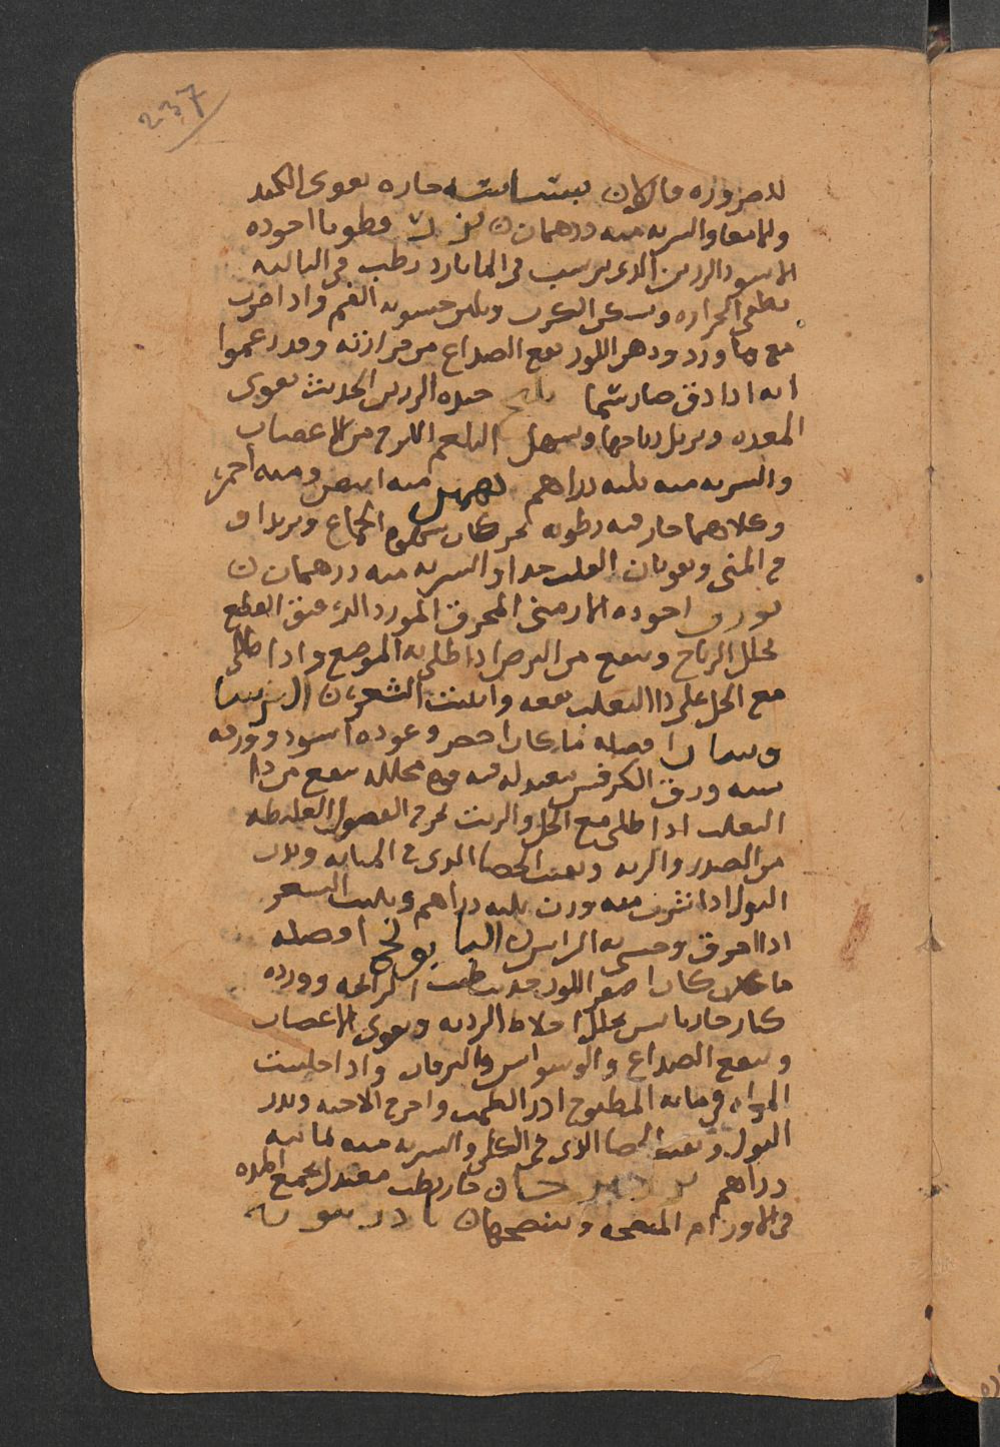 237
لدصروره مالان بستاشه حاره يقوى الكبد
والامعا والسربه منه درهمان بزر قطونا احوده
الاسود الررين الذى يرسب فى الما بارد رطب فى الثانيه
يطفى الحراره ويسكن الكرب ويلين خشونه الفم واذا ضرب
مع ماورد ودهن اللوز نفع الصداع من حرارته وقد زعموا
انه اذا دق صار سما جيده الررين الحديث يقوى
المعده ويزيل رياحها ويسهل البلغم اللزج من الاعصاب
والسربه منه ثلثه دراهم بهمن منه ابيض ومنه احمر
وكلاهما حار فيه رطوبه يحركان شهوه الجماع ويزيدان
فى المنى ويقويان القلب جدا والسربه منه درهمان
بورق احوده الارمنى المحرق المورد القطع
يحلل الرياح وينفع من البرص اذا طلى به الموضع واذا طلى
مع الخل على دا الثعلب نفعه وانبتت الشعر
افضله ما كان اخضر وعوده اسود وورقه
يشبه ورق الكرفس معتدله فيه قوه محلله ينفع من دا
الثعلب اذا طلى مع الخل والزيت يخرج الفضول الغليظه
من الصدر والريه ويفتت الحصا الذى فى المثانه ويدر
البول اذا شرب منه وزن ثلثه دراهم وينبت الشعر
اذا احرق وحسى به الراس البابونج افضله
ما كان اصفر اللون حديث طيب الرايحه وورده
كبار حار يابس يحلل اخلاط الرديه ويقوى الاعصاب
وينفع الصداع والوسواس واليرقان واذا جلست
المراه فى مايه المطبوخ ادر الطمث واخرج الاجنه ويدر
البول ويفتت الحصا الذى فى الكلى والسربه منه ثمانيه
دراهم حار رطب معتدل يجمع المده
فى الاورام وينضجها بادرنبويه